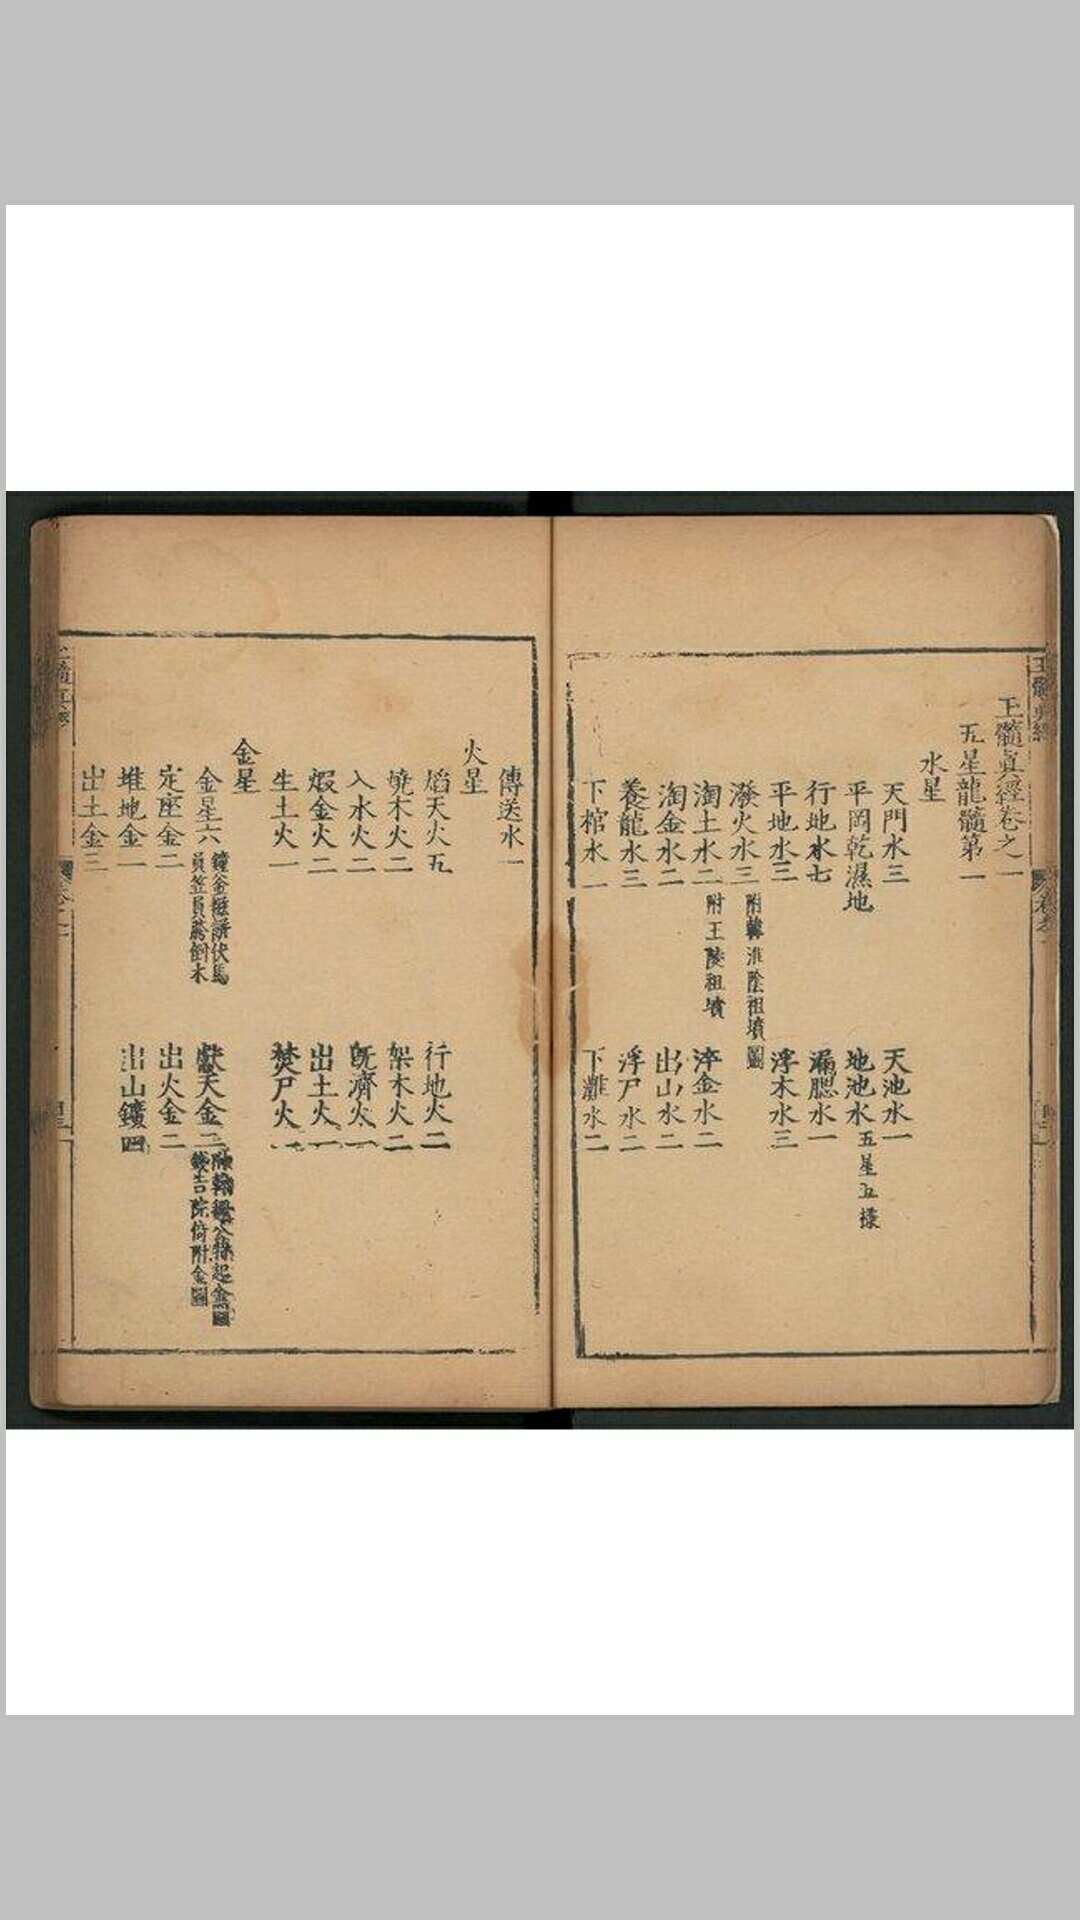 玉髓眞經卷之一
五星龍髓第一
水星
天門水三
天池水一
平岡乾濕地
地池水五星五様
行地水七
漏腮水一
平地水三
浮木水三
潑火水三附韓淮陰祖墳圖
淘土水二附王陵祖墳
淬金水二
淘金水二
出山水二
養龍水三
浮尸水二
下棺水一
下灘水二
傳送水一
火星
焰天火五
行地火二
燒木火二
架木火二
入水火二
旣濟火一
煆金火二
出土火一
生土火一
焚尸火一
金星
金星六
獻天金三
定座金二
出火金二
堆地金一
出山鑛四
出土金三